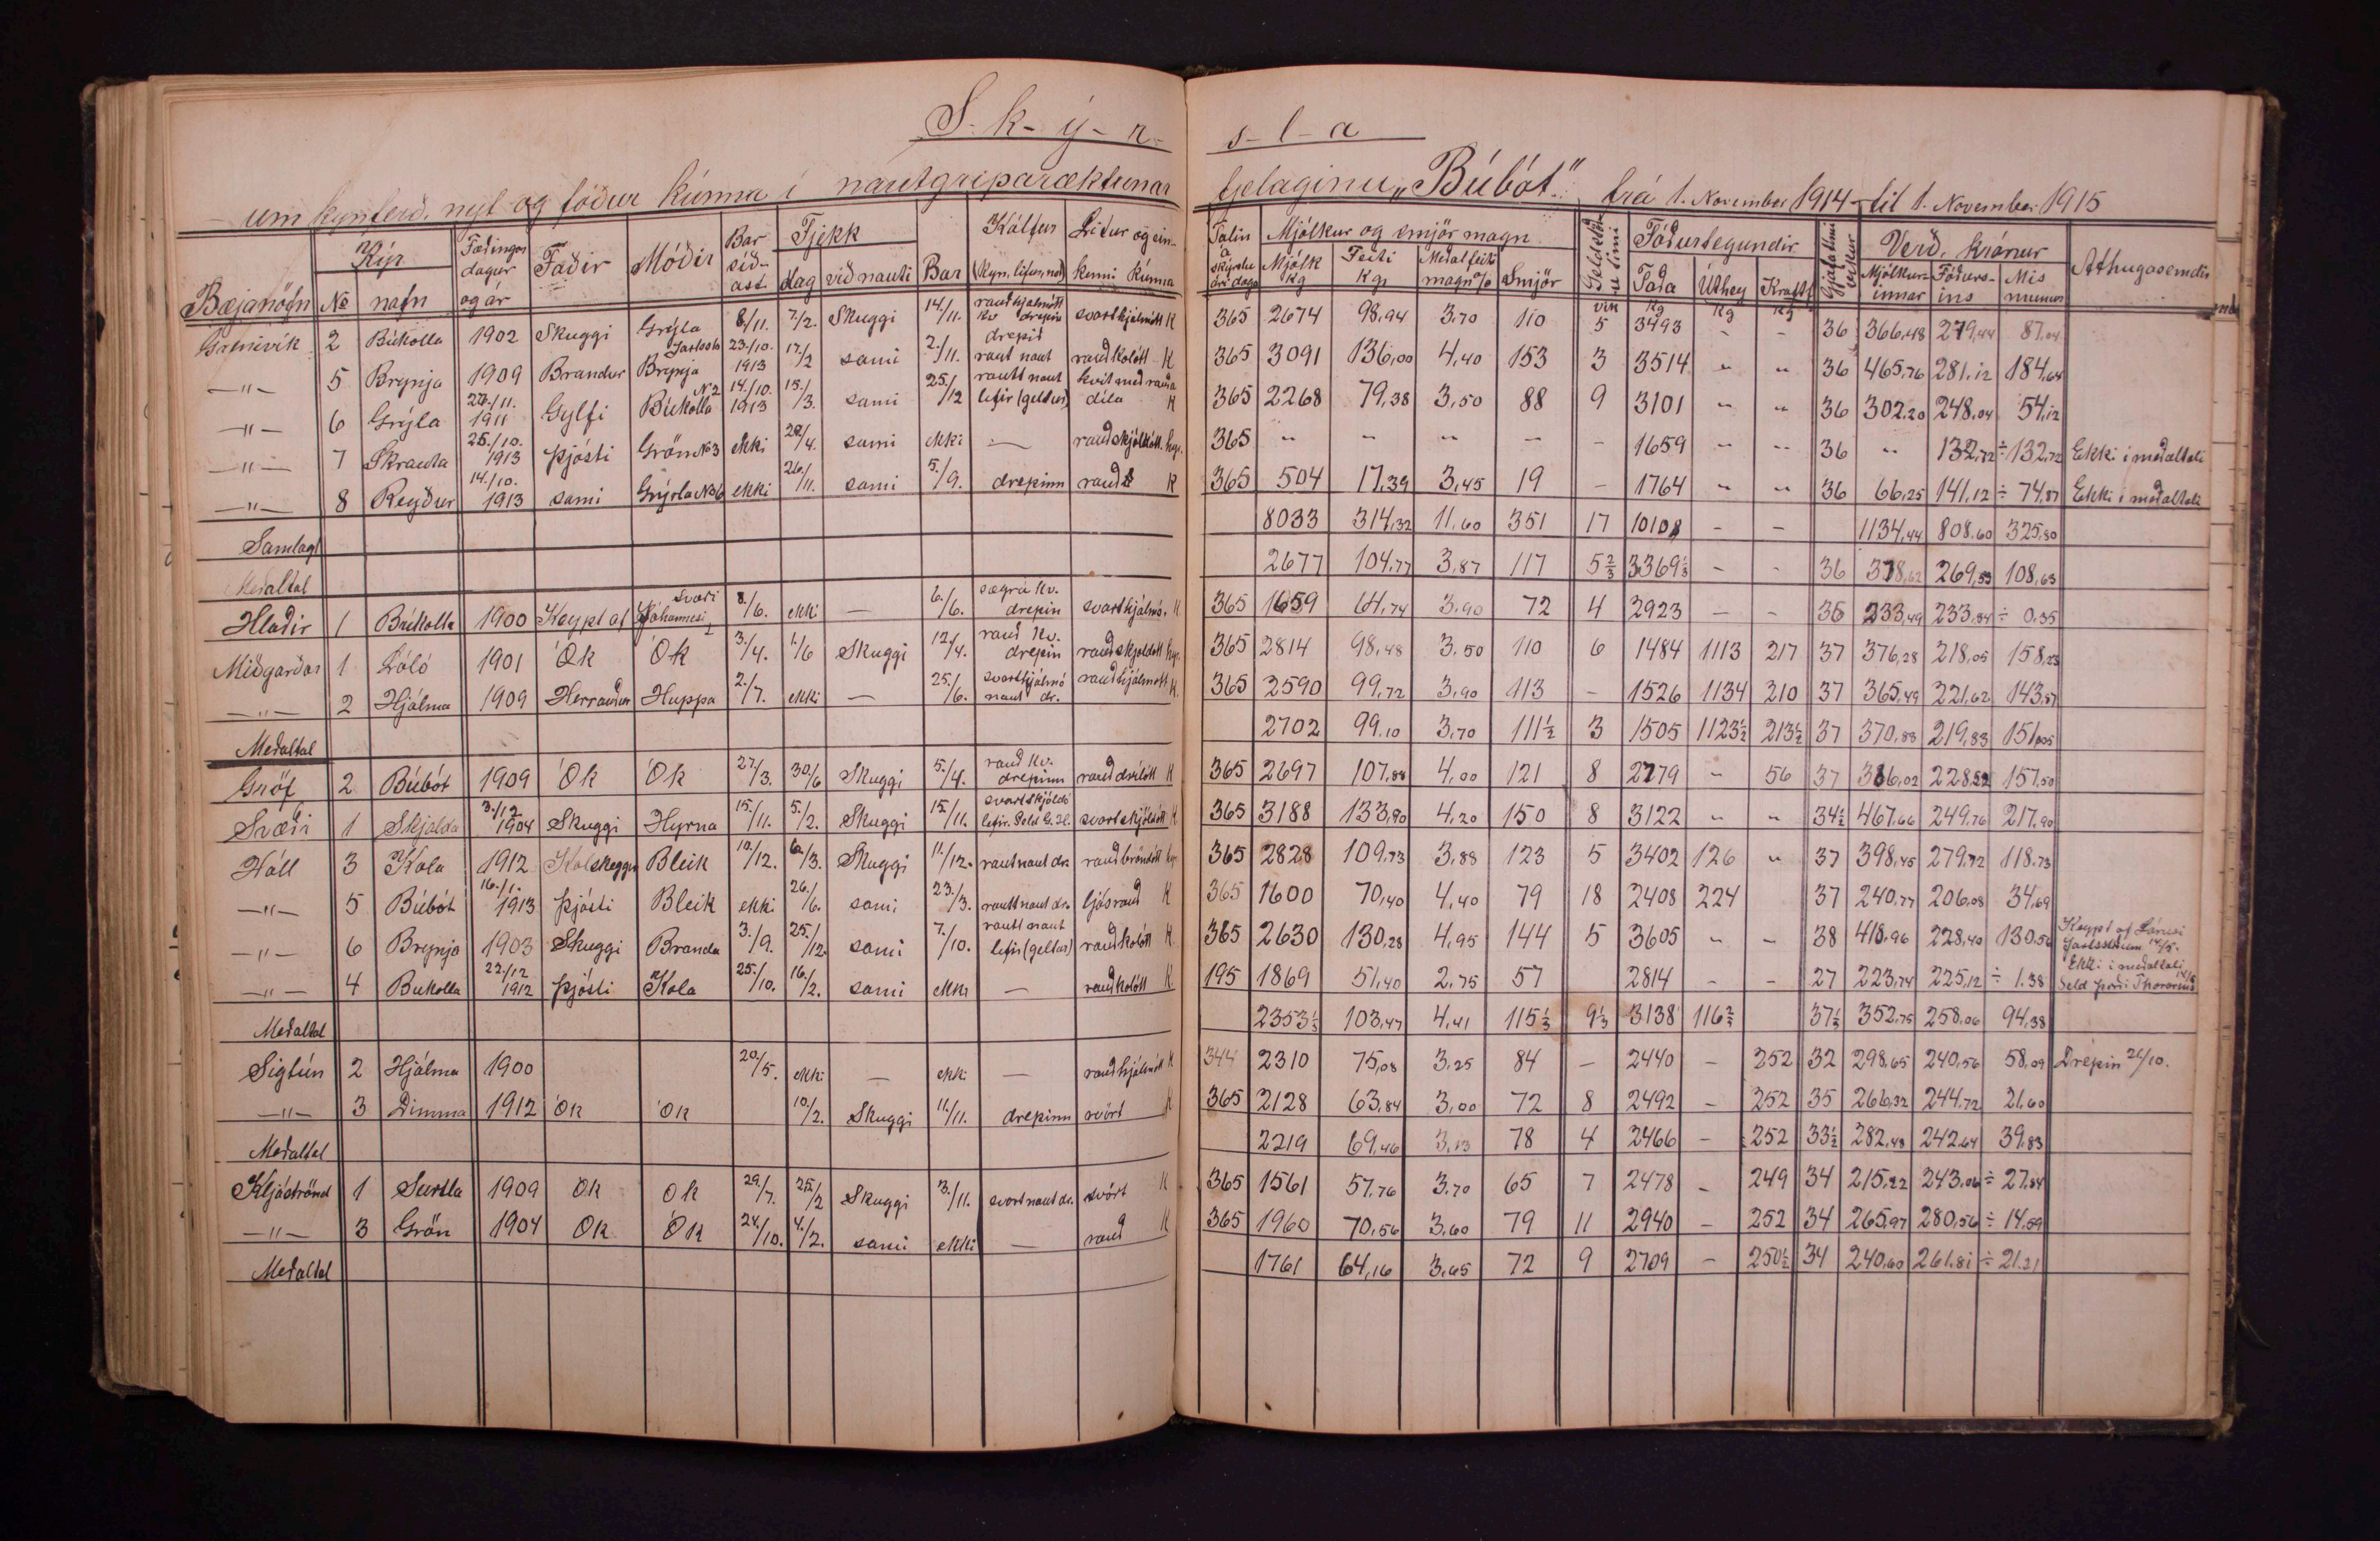 S-k-ý-r-s-l-a
um kynferð, nyt og fóður kúnna í nautgriparæktunar fjelaginu „Búbót“ frá 1. November 1914 - til 1. November 1915
Bæjanöfn Kýr № nafn Fæðingar dagur og ár Faðir Móðir Bar síð-ast Fjekk dag við nauti Bar Kálfur (Kyn, lifur, not) Litur og ein-kenni kúnna Talin á skýrslu ári daga Mjólkur og smjör magn Mjólk kg Feiti kg Meðal feiti magn % Smjör Geldstöðu tími vik Fóðurtegundir Taða kg Úthey kg Kraftf kg Gjafatími vikur Verð, krónur Mjólkur-innar Fóðurs-ins Mis munur Athugasemdir
Grenivík 2 Búkolla 1902 Skuggi Grýla 8/11. 7/2. Skuggi 14/11. rauðhjálmótt kv drepin svarthjálmótt K 365 2674 98,94 3,70 110 5 3493 - - 36 366,48 279,44 87,04
—"— 5 Brynja 1909 Brandur Jarlsst. Brynja 23./10. 1913 17/2 sami 2./11. drepið rautt naut rauðkolótt K 365 3091 136,00 4,40 153 3 3514 " " 36 465,76 281,12 184,64
—"— 6 Grýla 22./11. 1911 Gylfi №2 Búkolla 14./10. 1913 15./3. sami 25./12 rautt naut lifir (geldur) hvít með rauða díla K 365 2268 79,38 3,50 88 9 3101 " " 36 302,20 248,04 54,12
—"— 7 Skrauta 25./10. 1913 Þjósti Grön №3 ekki 29/4. sami ekki — rauðskjöldótt hyr. 365 " " " - - 1659 " " 36 " 132,72 ÷132,72 Ekki í meðaltali
—"— 8 Reyður 14./10. 1913 sami Grýla №6 ekki 26./11. sami 5./9. drepinn rauð K 365 504 17,39 3,45 19 - 1764 " " 36 66,25 141,12 ÷ 74,87 Ekki í meðaltali
Samlagt 8033 314,32 11,60 351 17 10108 - - 1134,44 808,60 325,80
Meðaltal 2677 104,77 3,87 117 5⅔ 3369⅓ - - 36 378,62 269,53 108,63
Hlaðir 1 Búkolla 1900 Keypt af Jóhannesi Svæði 8./6. ekki — 6./6. sægrá kv. drepin svarthjálmó. K 365 1659 64,74 3,90 72 4 2923 — - 36 233,49 233,84 ÷ 0,35
Miðgarðar 1 Lóló 1901 Ók Ók 3./4. 1./6 Skuggi 12./4. rauð kv. drepin rauðskjöldótt hyr. 365 2814 98,48 3,50 110 6 1484 1113 217 37 376,28 218,05 158,23
—"— 2 Hjálma 1909 Herrauður Huppa 2./7. ekki — 25./6. svarthjálmó naut dr. rauðhjálmótt K. 365 2590 99,72 3,90 113 - 1526 1134 210 37 365,49 221,62 143,87
Meðaltal 2702 99,10 3,70 111½ 3 1505 1123½ 213½ 37 370,83 219,83 151,05
Gröf 2 Búbót 1909 Ók Ók 27./3. 30./6 Skuggi 5./4. rauð kv. drepinn rauð drílótt K 365 2697 107,88 4,00 121 8 2279 " 56 37 386,02 228,52 157,50
Svæði 1 Skjalda 3./12 1904 Skuggi Hyrna 15./11. 5./2. Skuggi 12./11. svartskjöldó lifir. Seld G. H. svartskjöldótt K 365 3188 133,90 4,20 150 8 3122 " " 34½ 467,66 249,76 217,90
Háll 3 Kola 1912 Kolskeggur Bleik 10/12. 6./3. Skuggi 11./12. rautt naut dr. rauðbröndótt hyr. 365 2828 109,73 3,88 123 5 3402 126 " 37 398,45 279,72 118,73
—"— 5 Búbót 16./1. 1913 Þjósti Bleik ekki 26./6. sami 23./3. rautt naut dr. ljósrauð K 365 1600 70,40 4,40 79 18 2408 224 37 240,77 206,08 34,69
—"— 6 Brynja 1903 Skuggi Branda 3./9. 25./12. sami 7./10. rautt naut lifir (geltur) rauðkolótt K 365 2630 130,28 4,95 144 5 3605 " - 38 418,96 228,40 130,56 Keypt af Lárusi Jarlsstöðum 14/5.
—"— 4 Bukolla 22./12 1912 Þjósti Kola 25./10. 16./2. sami ekki — rauðkolótt K 195 1869 51,40 2,75 57 2814 - - 27 223,74 225,12 ÷ 1,38 Ekki í meðaltali Seld Þórði Thorarins
Meðaltal 2353⅓ 103,47 4,41 115⅓ 9⅓ 3138 116⅔ 37⅓ 352,75 258,06 94,38
Sigtún 2 Hjálma 1900 20/5. ekki — ekki — rauðhjálmótt K 344 2310 75,08 3,25 84 — 2440 - 252 32 298,65 240,56 58,09 Drepin 21/10.
—"— 3 Dimma 1912 Ók Ók 10/2. Skuggi 11./11. drepinn svört K 365 2128 63,84 3,00 72 8 2492 - 252 35 266,32 244,72 21,60
Meðaltal 2219 69,46 3,13 78 4 2466 - 252 33½ 282,48 242,64 39,83
Kljáströnd 1 Surtla 1909 Ók Ók 29./7. 25./2 Skuggi 3./11. svart naut dr. svört K 365 1561 57,76 3,70 65 7 2478 - 249 34 215,22 243,06 ÷ 27,84
—"— 3 Grön 1904 Ók Ók 24./10. 4./2. sami ekki — rauð K 365 1960 70,56 3,60 79 11 2940 - 252 34 265,97 280,56 ÷ 14,59
Meðaltal 1761 64,16 3,65 72 9 2709 - 250½ 34 240,60 261,81 ÷ 21,21